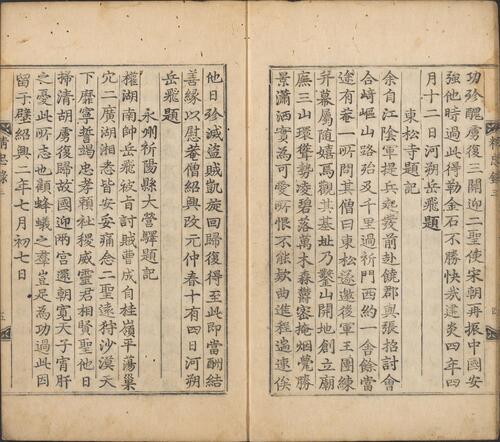 功殄醜虜復三關迎二聖使宋朝再振中國安
強他時過此得勒金石不勝快哉建炎四年四
月十二日河朔岳飛題
東松寺題記
余自江陰軍提兵起發前赴饒郡與張招討會
合崎嶇山路殆及千里過祁門西約一舍餘當
途有菴一所問其僧曰東松遂邀後軍王團練
并幕屬隨嬉焉觀其基址乃鑿山開地創立廊
廡三山環聳勢凌碧落萬木森鬱密掩烟甍勝
景瀟洒實為可愛所恨不能款曲進程遄速俟
他日殄滅盜賊凱旋回歸復得至此即當酬結
善緣以慰菴僧紹興改元仲春十有四日河朔
岳飛題
永州祈陽縣大營驛題記
權湖南帥岳飛被旨討賊曹成自桂嶺平蕩巢
穴二廣湖湘悉皆安妥痛念二聖遠狩沙漠天
下靡寧誓竭忠孝賴社稷威靈君相賢聖他日
掃清胡虜復歸故國迎兩宮還朝寬天子宵旰
之憂此所志也顧蜂蟻之羣豈足為功過此因
留于壁紹興二年七月初七日
精忠錄 三
五